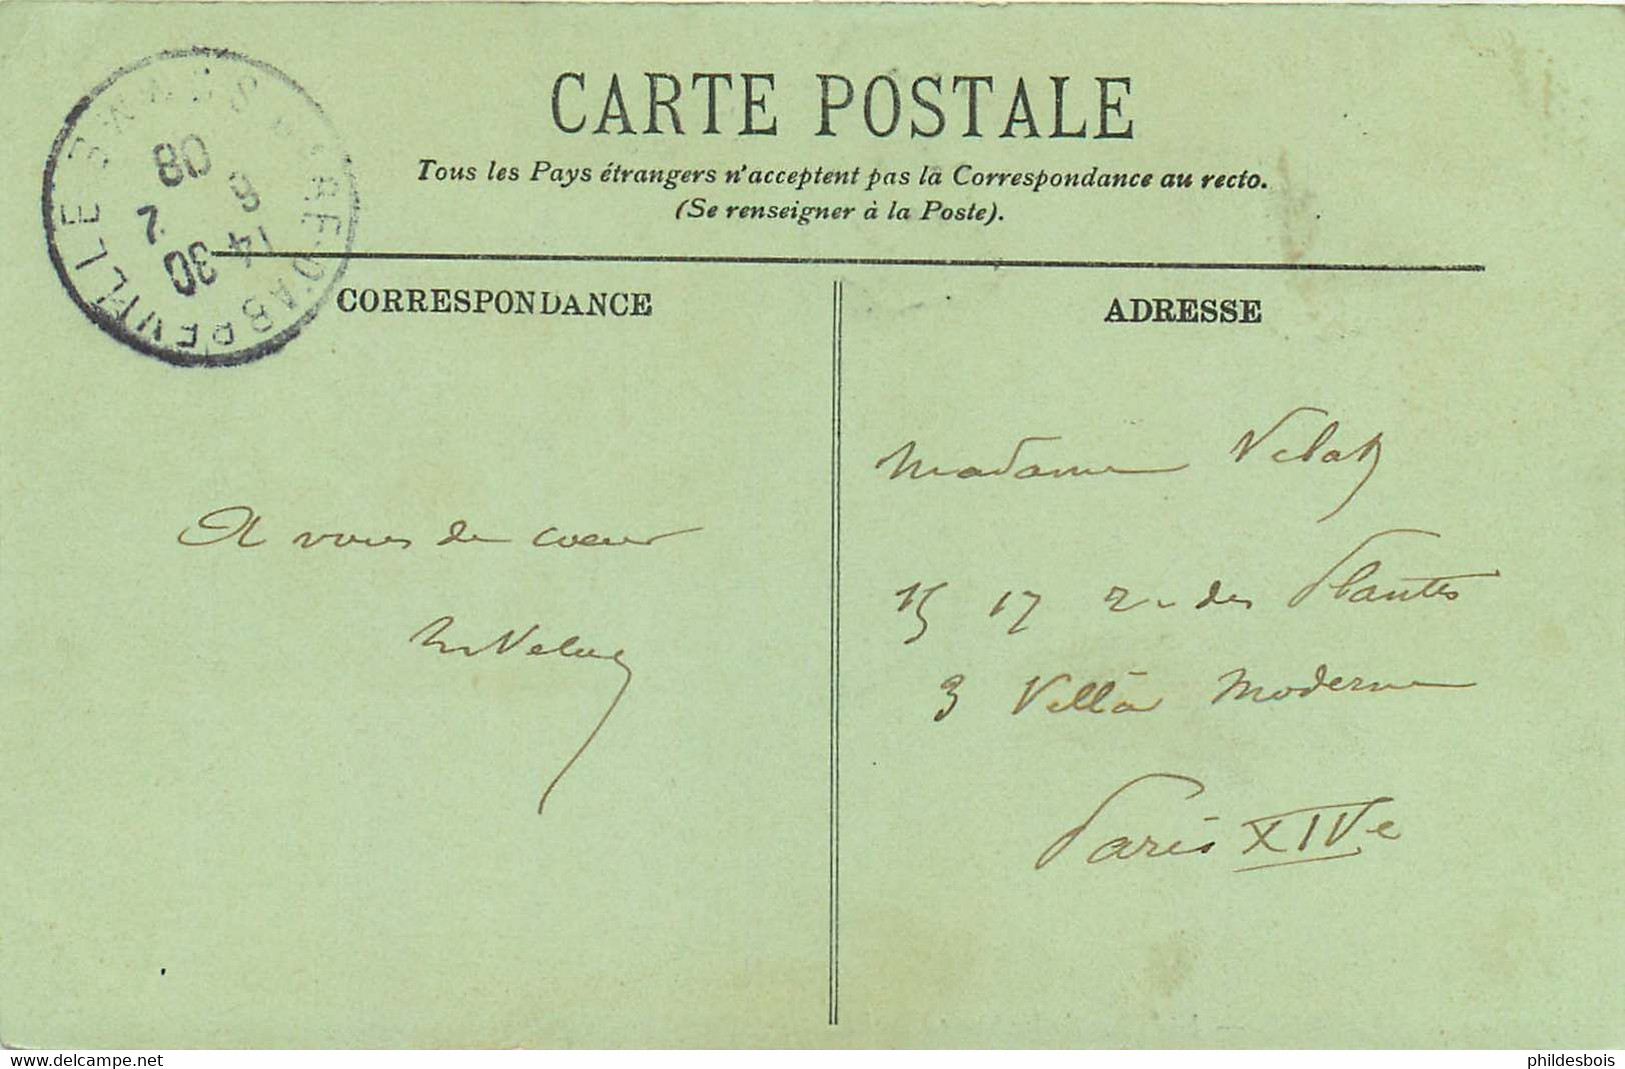 CARTE POSTALE
Tous les Pays étrangers n'acceptent pas la Correspondance au recto.
(Se renseigner à la Poste).
GARE D'ABBEVILLE SOMME
14 30
6 7
08
CORRESPONDANCE
A vous de cœur
ADRESSE
Madame
15 17 r. des Plantes
3 Villa Moderne
Paris XIVe
www.delcampe.net
phildesbois